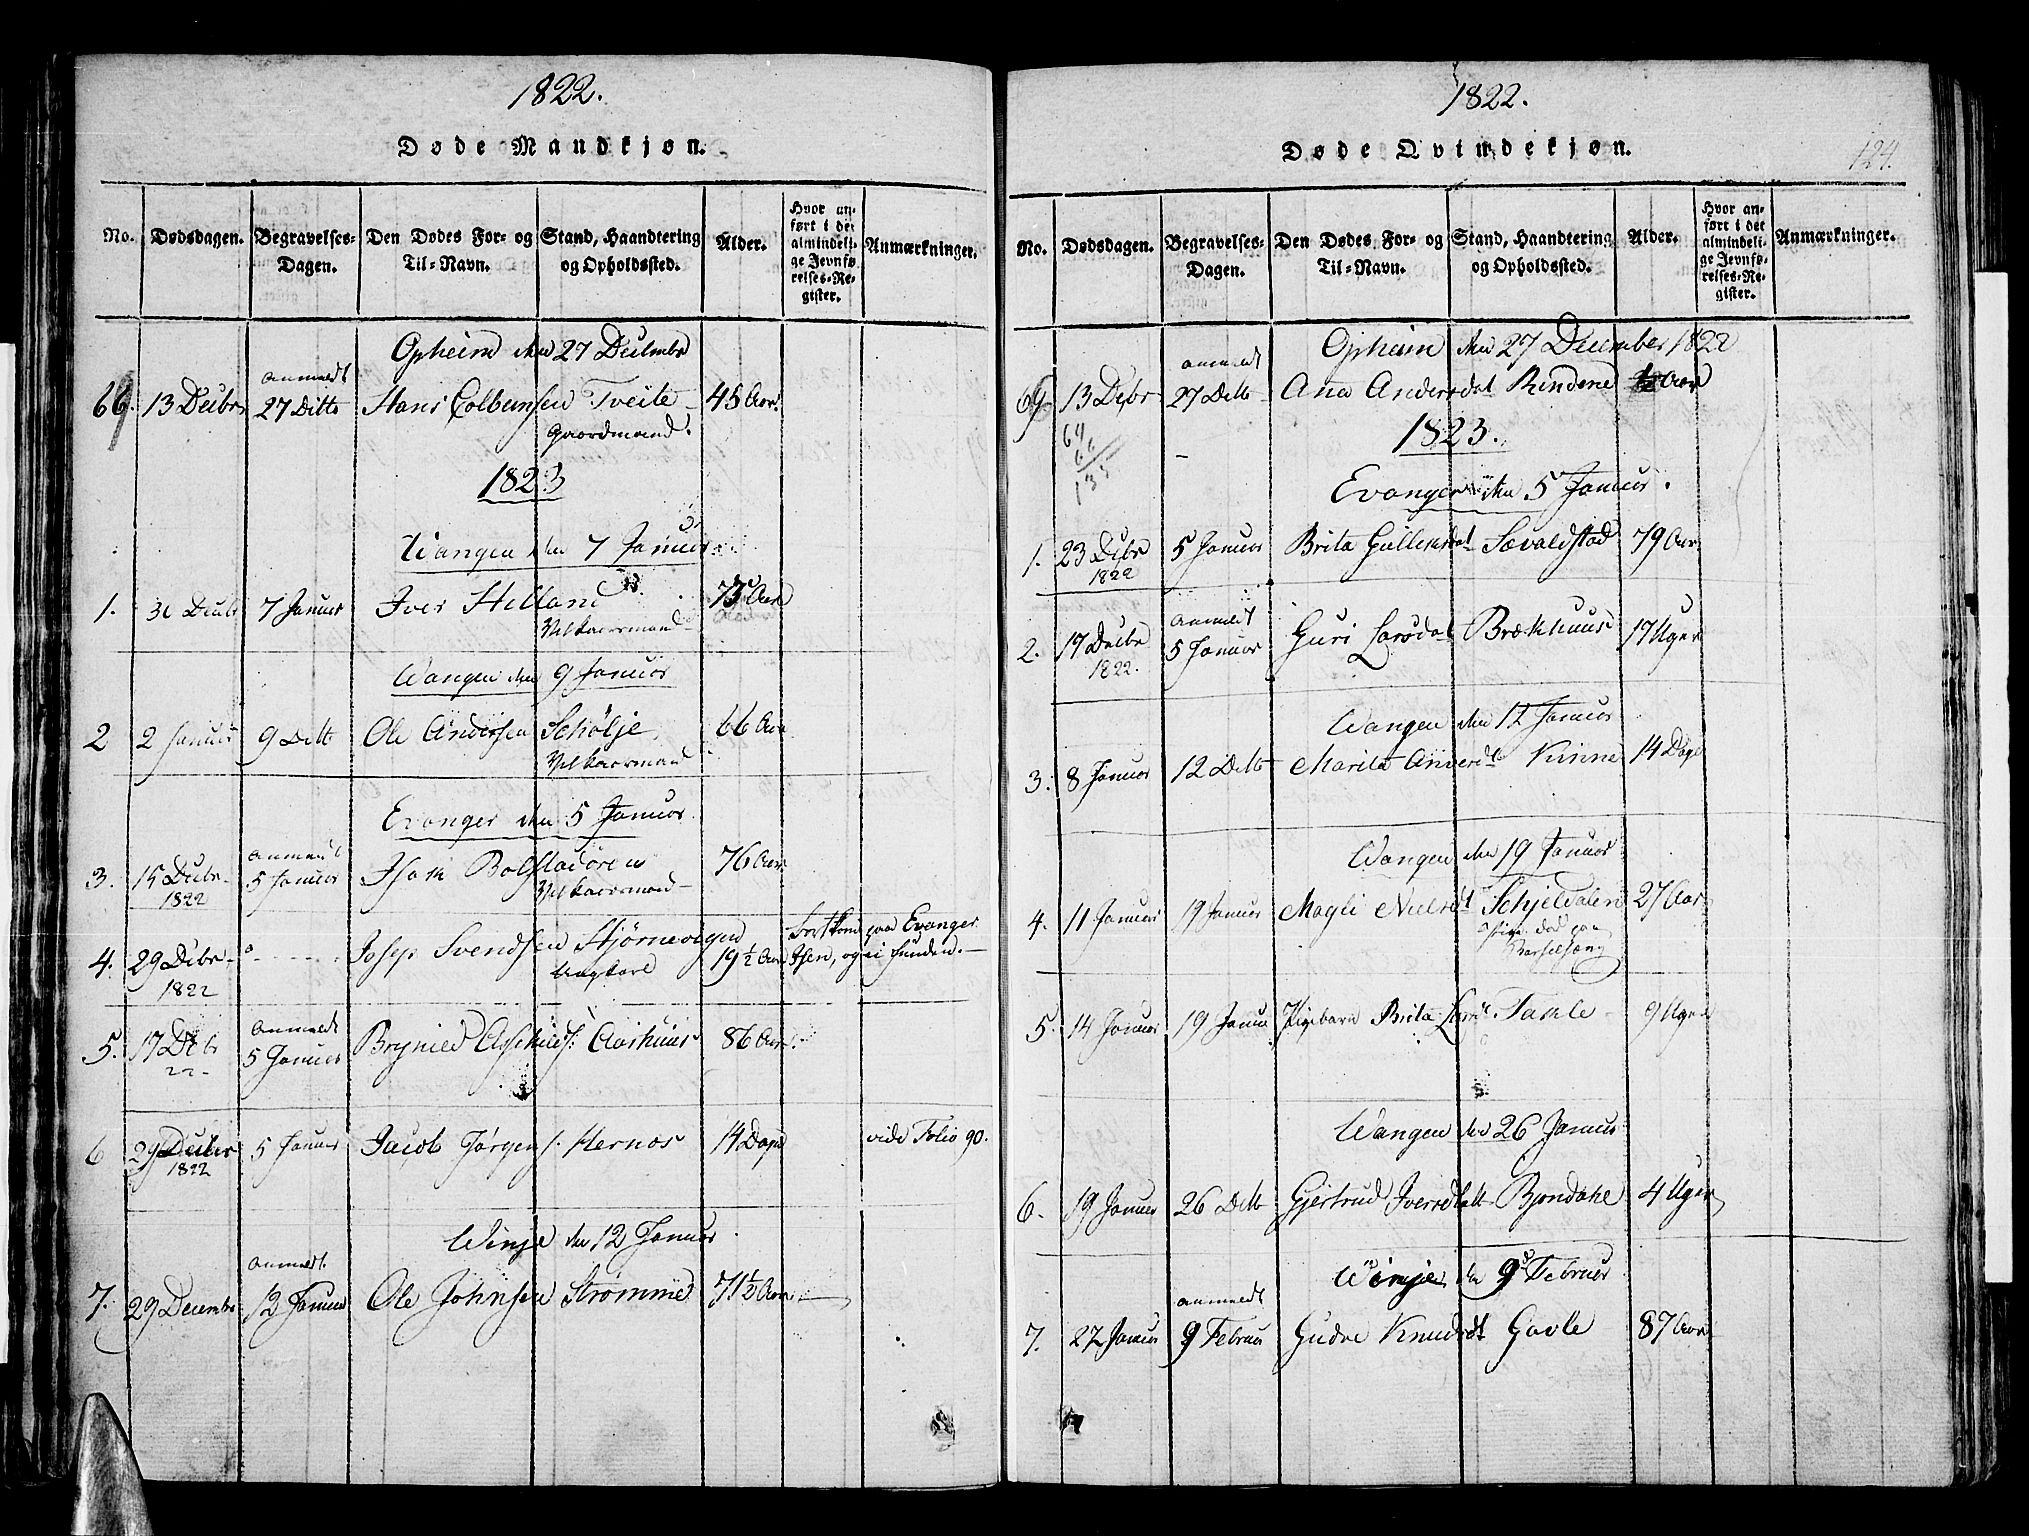 1822.
Døde Mandkjøn.
No. Dødsdagen. Begravelses-Dagen. Den Dødes For- og Til-Navn. Stand, Haandtering og Opholdssted. Alder. Hvor anført i det almindelige Jevnførelses-Register. Anmærkninger.
Opheim den 27 Decembr
anmeldt
66. 13 Decbr 27 Ditto Hans Colbensen Tveite 45 Aar.
Gaardmand.
1823
Wangen den 7 Januar
1. 7 Januar Iver Helland 73 Aar
Vilkaarsmand
Wangen den 9 Januar
2 2 Januar 9 Ditto Ole Andersen Schølje 66 Aar
Vilkaarsmand
Evanger den 5 Januar
anmeldt
3. 15 Decbr 5 Januar Isak Bolstadøren 76 Aar
1822 Vilkaarsmand
4. 29 Decbr Josep Svendsen Stjørnevigen 19½ Aar Fortkom paa Evanger
1822 Ungkarl Isen, og ei funden.
anmeldt
5. 17 Decbr 5 Januar Brynild Aschields: Aarhuus 86 Aar
22
6 29 Decbr 5 Januar Jacob Jørgens: Hernæs 14 Dage vide Folio 90.
1822
Winje den 12 Januar
anmeldt
7. 29 Decembr 12 Januar Ole Johnsen Strømme 71½ Aar
1822.
Døde Qvindekjøn.
124.
No. Dødsdagen. Begravelses-Dagen. Den Dødes For- og Til-Navn. Stand, Haandtering og Opholdssted. Alder. Hvor anført i det almindelige Jevnførelses-Register. Anmærkninger.
Opheim den 27 December 1822
anmeldt
69 13 Decbr 27 Ditto Ana Andersdat Rindene Aar
1823.
Evanger den 5 Januar.
1. 23 Decbr 5 Januar Brita Gulleiksdat Sævaldstad 79 Aar
1822
anmeldt
2. 17 Decbr 5 Januar Guri Larsdat Brækhuus 17 Uger
1822.
Wangen den 12 Januar
3. 8 Januar 12 Ditto Marita Andersdt Kinne 14 Dage
Wangen den 19 Januar
4. 11 Januar 19 Januar Magli Nielsdt Schjeldalen 27 Aar
Pige død paa
Barselsæng
5. 14 Januar 19 Januar Pigebarn Brita Larsd. 9 Uger
Wangen den 26 Januar
6. 19 Januar 26 Ditto Gjertrud Iversdatt Bjøndahl 4 Uger
Winje den 9 Februar
anmeldt
7. 27 Januar 9 Februar Gudve Knudsdt Gavle 87 Aar